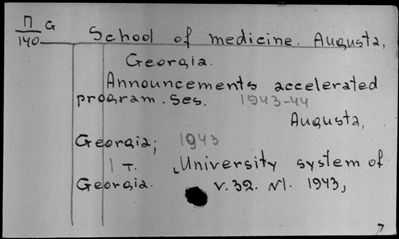 П G
140
School of medicine. Augusta,
Georgia.
Announcements accelerated
program. Ses. 1943-44
Augusta,
Georgia; 1943
1 т. University system of
Georgia. v. 32. №1. 1943,